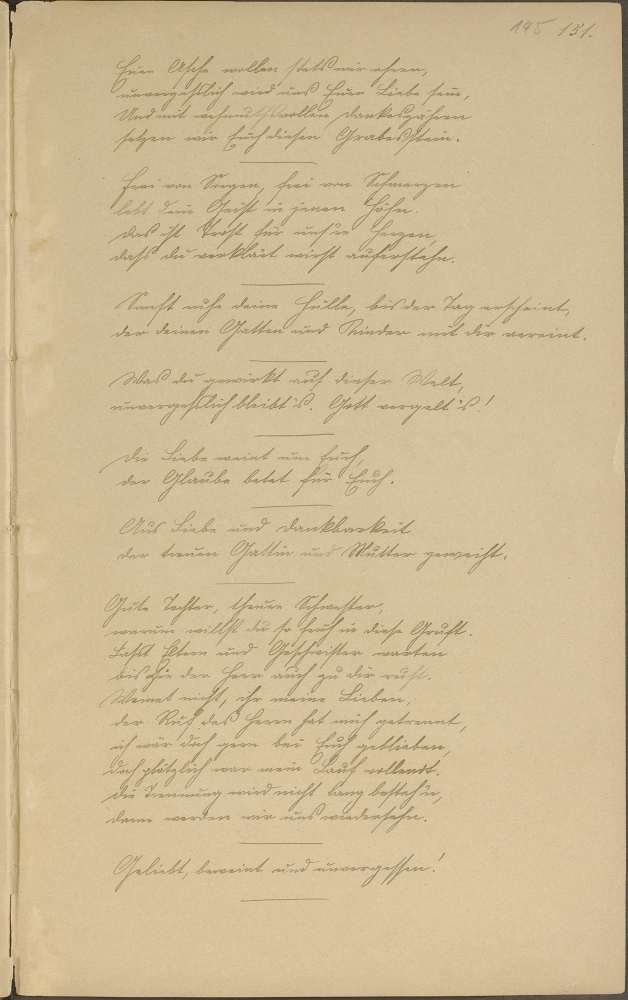 145 151.
Eure Asche wollen stets wir ehren,
unvergeßlich wird uns Eure Liebe sein,
Und mit wehmuthsvollen Dankeszähren
setzen wir Euch diesen Grabesstein.
Frei von Sorgen, frei von Schmerzen
lebt Dein Geist in jenen Höhn.
Das ist Trost für uns're Herzen,
daß du verklärt wirst auferstehn.
Sanft ruhe deine Hülle, bis der Tag erscheint,
der deinen Gatten und Kinder mit dir vereint.
Was du gewirkt auf dieser Welt,
unvergeßlich bleibt's. Gott vergelt's!
Die Liebe weint um Euch,
der Glaube betet für Euch.
Aus Liebe und Dankbarkeit
der treuen Gattin und Mutter geweiht.
Gute Tochter, theure Schwester,
warum willst du so früh in diese Gruft.
Laßt Eltern und Geschwister warten
bis sie der Herr auch zu dir ruft.
Weinet nicht, ihr meine Lieben,
der Ruf des Herrn hat mich getrennt,
ich wär doch gern bei Euch geblieben,
doch plötzlich war mein Lauf vollendt.
Die Trennung wird nicht lang bestehn,
dann werden wir uns wiedersehn.
Geliebt, beweint und unvergessen!